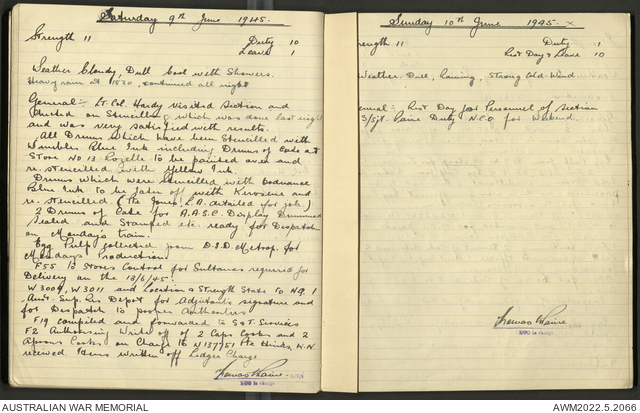 Saturday 9th June 1945.
Strength 11 Duty 10
Leave 1
Weather Cloudy, Dull Cool with Showers.
Heavy rain at 1530, continued all night
General:- Lt. Col. Hardy visited Section and
checked on Stencilling which was done last night
and was very satisfied with results.
All Drums which have been Stencilled with
Wombles Blue Ink including Drums of Cake at
Store No 13 Rozelle to be painted over and
re-stencilled with Yellow Ink.
Drums which were stencilled with Ordnance
Blue Ink to be taken off with Kerosene and
re-stencilled (Pte Jones L.A. detailed for job)
2 Drums of Cake for A.A.S.C. Display
Sealed and Stamped etc. ready for Despatch
on Monday's train.
Egg Pulp collected from D.S.D. Metrop. for
Monday's Production.
F55 to Stores Control for Sultanas required for
Delivery on the 13/6/45.
W3009, W3011 and Location & Strength State to HQ 1
Aust. Sup. Res Depot for Adjutants signature and
for Despatch to proper Authorities
F19 compiled and forwarded to S & T. Services
F2 Authorising Write off of 2 Caps Cooks and 2
Aprons Cooks on Charge to N137951 Pte
received. Items written off Ledger Charge
Thomas Raine
NCO in charge
Sunday 10th June 1945
Strength 11 Duty 1
Rest Day & Leave 10
Weather. Dull, Raining, Strong Cold Wind
General:- Rest Day for Personnel of Section
S/Sjt. Raine Duty N.C.O. for Weekend.
Thomas Raine
NCO in charge
AUSTRALIAN WAR MEMORIAL
AWM2022.5.2066